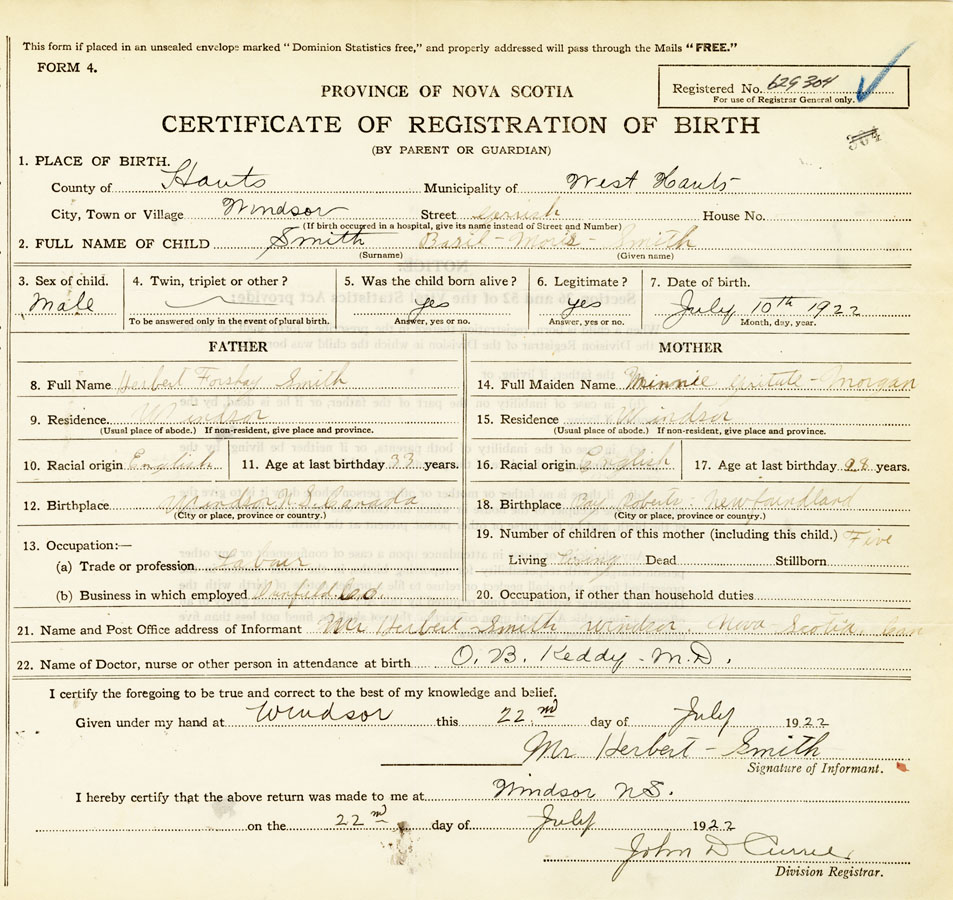 This form if placed in an unsealed envelope marked "Dominion Statistics free," and properly addressed will pass through the Mails "FREE."
FORM 4.
Registered No. 629304
For use of Registrar General only.
PROVINCE OF NOVA SCOTIA
CERTIFICATE OF REGISTRATION OF BIRTH
(BY PARENT OR GUARDIAN)
364
1. PLACE OF BIRTH.
County of Hants Municipality of West Hants
City, Town or Village Windsor Street House No.
(If birth occurred in a hospital, give its name instead of Street and Number)
2. FULL NAME OF CHILD Smith Basil - - Smith
(Surname) (Given name)
3. Sex of child. 4. Twin, triplet or other? 5. Was the child born alive? 6. Legitimate? 7. Date of birth.
Male yes yes July 10th 1922
To be answered only in the event of plural birth. Answer, yes or no. Answer, yes or no. Month, day, year.
FATHER MOTHER
8. Full Name Herbert Forshay Smith 14. Full Maiden Name Minnie - Morgan
9. Residence. Windsor 15. Residence Windsor
(Usual place of abode.) If non-resident, give place and province. (Usual place of abode.) If non-resident, give place and province.
10. Racial origin English 11. Age at last birthday 33 years. 16. Racial origin English 17. Age at last birthday 28 years.
12. Birthplace Windsor N.S. Canada 18. Birthplace Bay Roberts. Newfoundland
(City or place, province or country.) (City or place, province or country.)
13. Occupation:— 19. Number of children of this mother (including this child.) Five
(a) Trade or profession Labour Living living Dead Stillborn
(b) Business in which employed 20. Occupation, if other than household duties
21. Name and Post Office address of Informant Mr Herbert Smith Windsor. Nova Scotia. Can
22. Name of Doctor, nurse or other person in attendance at birth O. B. Keddy. M.D.
I certify the foregoing to be true and correct to the best of my knowledge and belief.
Given under my hand at Windsor this 22nd day of July 1922
Mr Herbert - Smith
Signature of Informant.
I hereby certify that the above return was made to me at Windsor NS.
on the 22nd day of July 1922
John D Currie
Division Registrar.